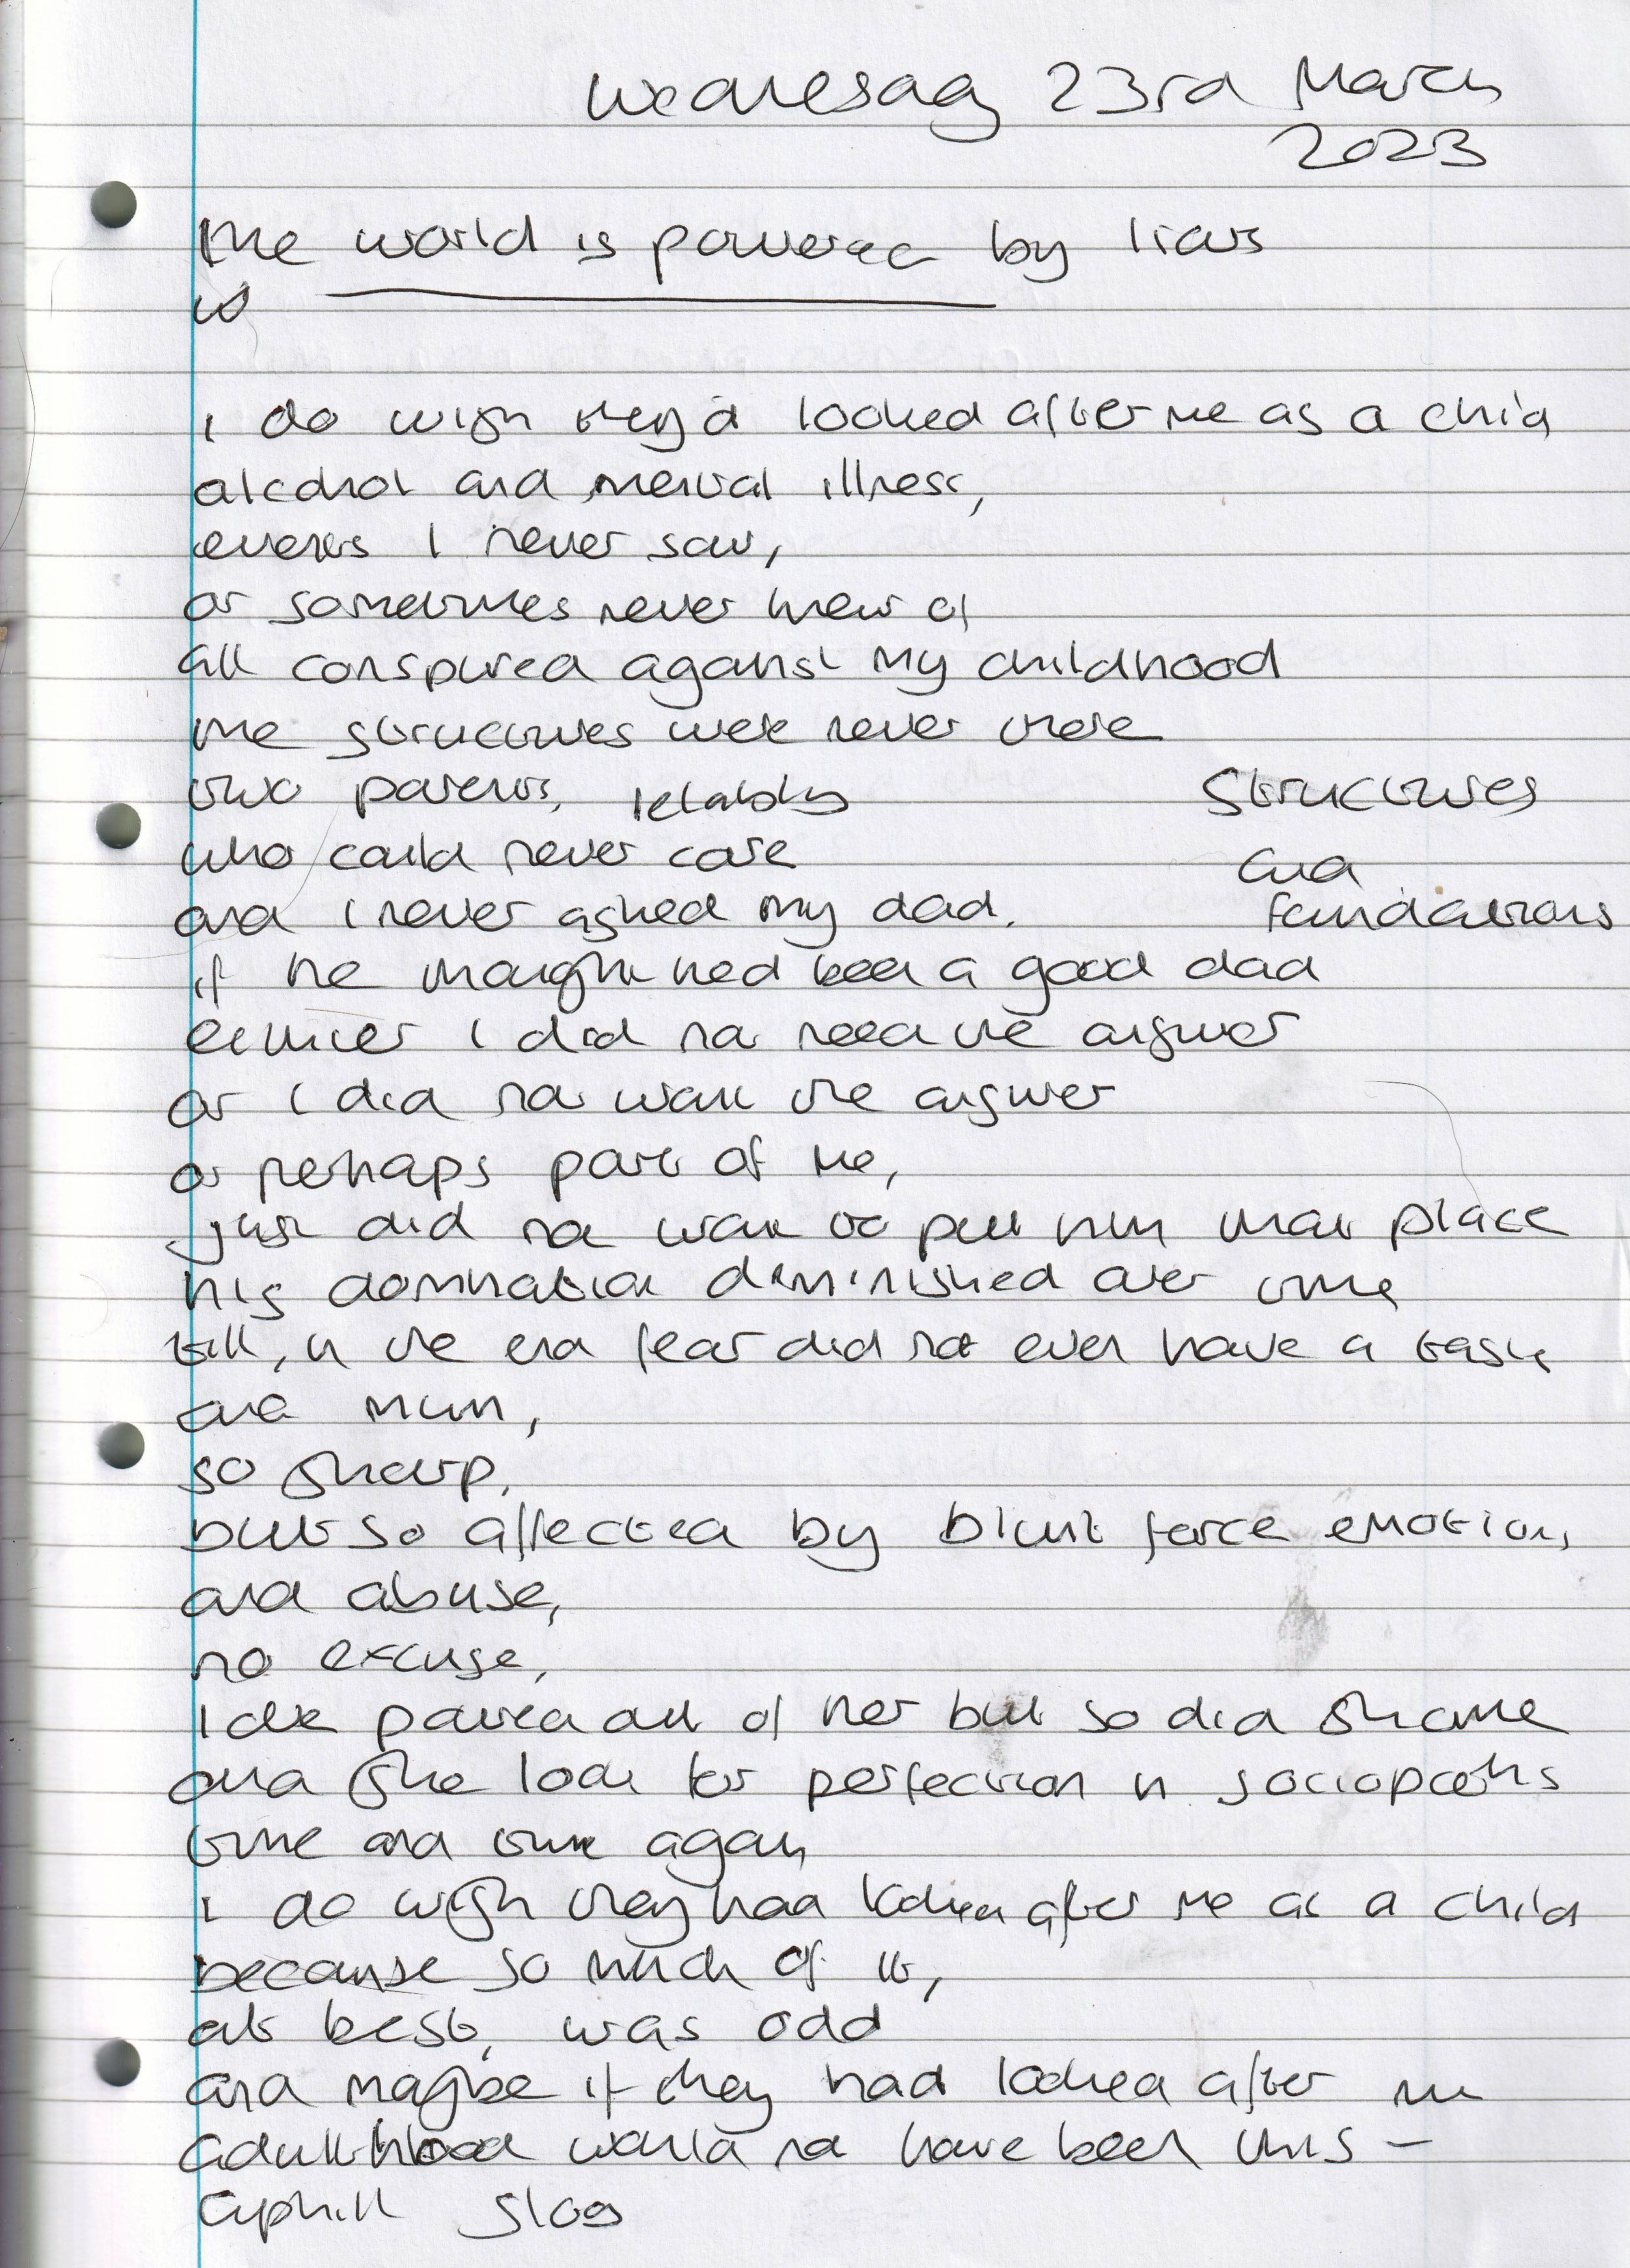 Wednesday 23rd March
2023
The world is powered by liars
I do wish they'd looked after me as a child
alcohol and mental illness,
events I never saw,
or sometimes never knew of
all conspired against my childhood
the structures were never there
two parents, reliably
Structures
who could never care
and
and I never asked my dad.
foundations
if he thought he'd been a good dad
either I did not need the answer
or I did not want the answer
or perhaps part of me,
just did not want to put him that place
his domination diminished over time
till, in the end fear did not even have a taste
and mum,
so sharp,
but so affected by blunt force emotion,
and abuse,
no excuse,
love poured out of her but so did shame
and she look for perfection in sociopaths
time and time again
I do wish they had looked after me as a child
because so much of it,
at best, was odd
and maybe if they had looked after me
adulthood would not have been this –
uphill slog